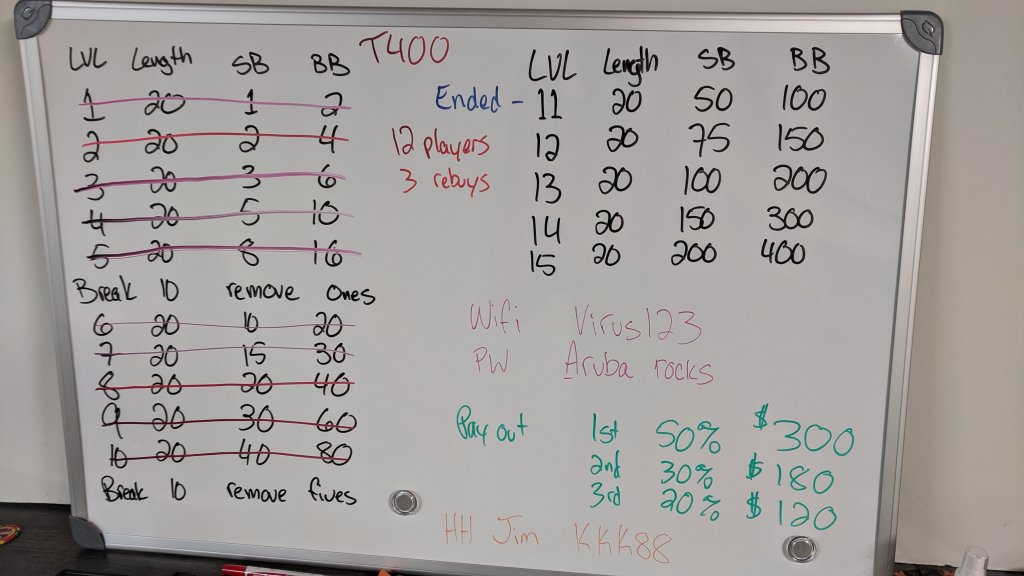 LVL Length SB BB
1 20 1 2
2 20 2 4
3 20 3 6
4 20 5 10
5 20 8 16
Break 10 remove ones
6 20 10 20
7 20 15 30
8 20 20 40
9 20 30 60
10 20 40 80
Break 10 remove fives
T400
12 players
3 rebuys
LVL Length SB BB
Ended - 11 20 50 100
12 20 75 150
13 20 100 200
14 20 150 300
15 20 200 400
Wifi Virus123
PW Aruba rocks
Pay out 1st 50% $300
2nd 30% $180
3rd 20% $120
HH Jim KKK88